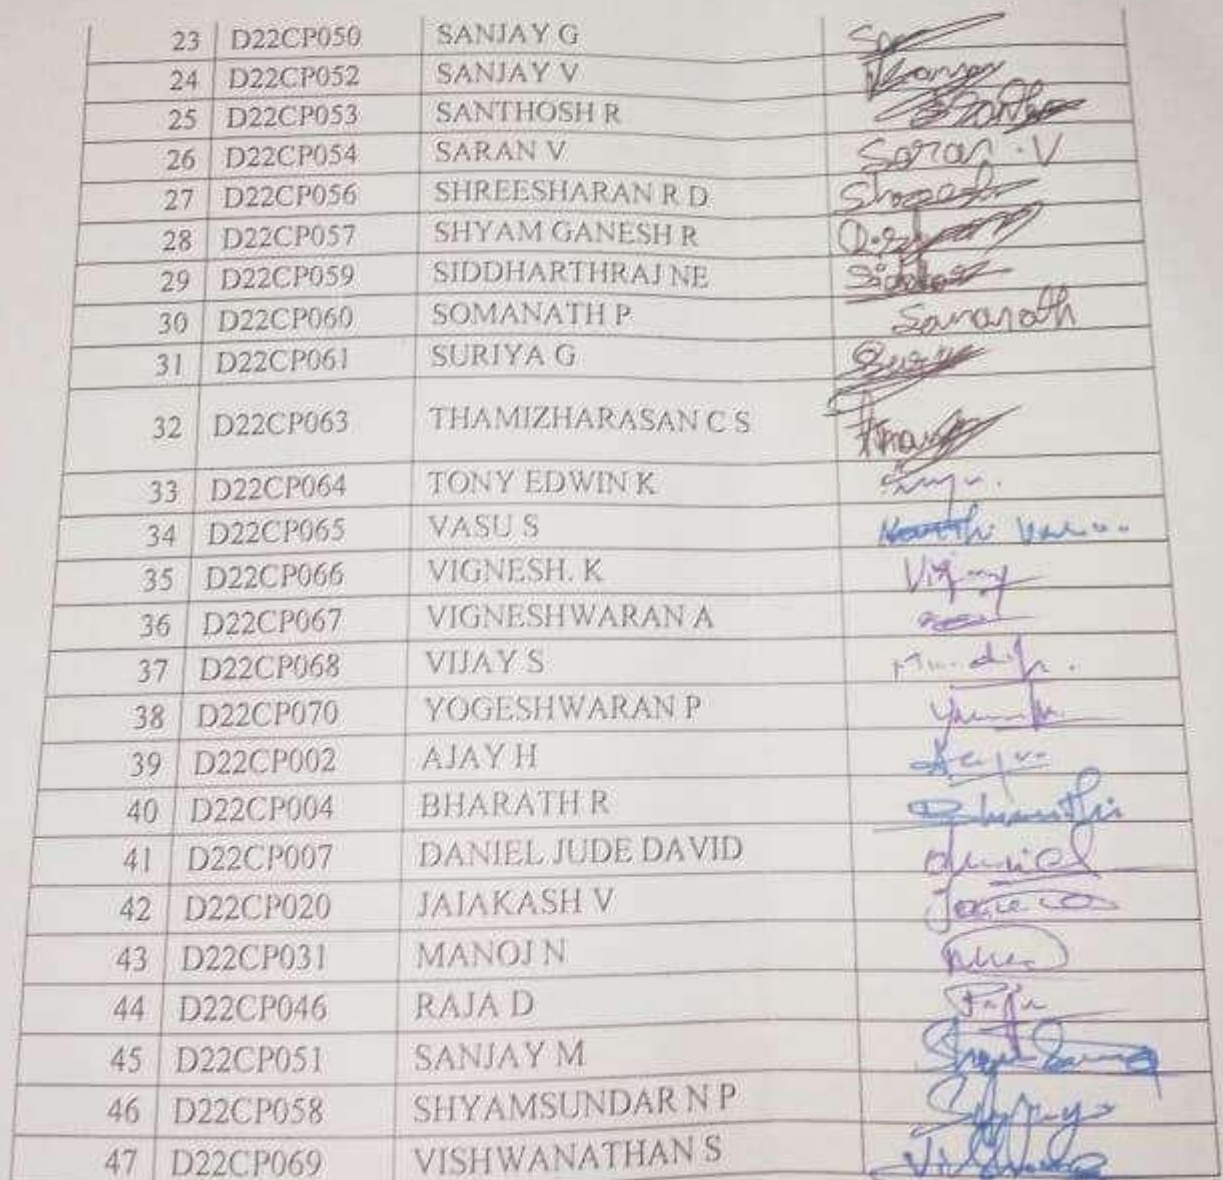 23 D22CP050 SANJAY G
24 D22CP052 SANJAY V
25 D22CP053 SANTHOSH R
26 D22CP054 SARAN V Saran . V
27 D22CP056 SHREESHARAN R D
28 D22CP057 SHYAM GANESH R
29 D22CP059 SIDDHARTHRAJ NE
30 D22CP060 SOMANATH P Somanath
31 D22CP061 SURIYA G
32 D22CP063 THAMIZHARASAN C S
33 D22CP064 TONY EDWIN K
34 D22CP065 VASU S
35 D22CP066 VIGNESH. K
36 D22CP067 VIGNESHWARAN A
37 D22CP068 VIJAY S
38 D22CP070 YOGESHWARAN P
39 D22CP002 AJAY H
40 D22CP004 BHARATH R
41 D22CP007 DANIEL JUDE DAVID
42 D22CP020 JAIAKASH V
43 D22CP031 MANOJ N
44 D22CP046 RAJA D
45 D22CP051 SANJAY M
46 D22CP058 SHYAMSUNDAR N P
47 D22CP069 VISHWANATHAN S